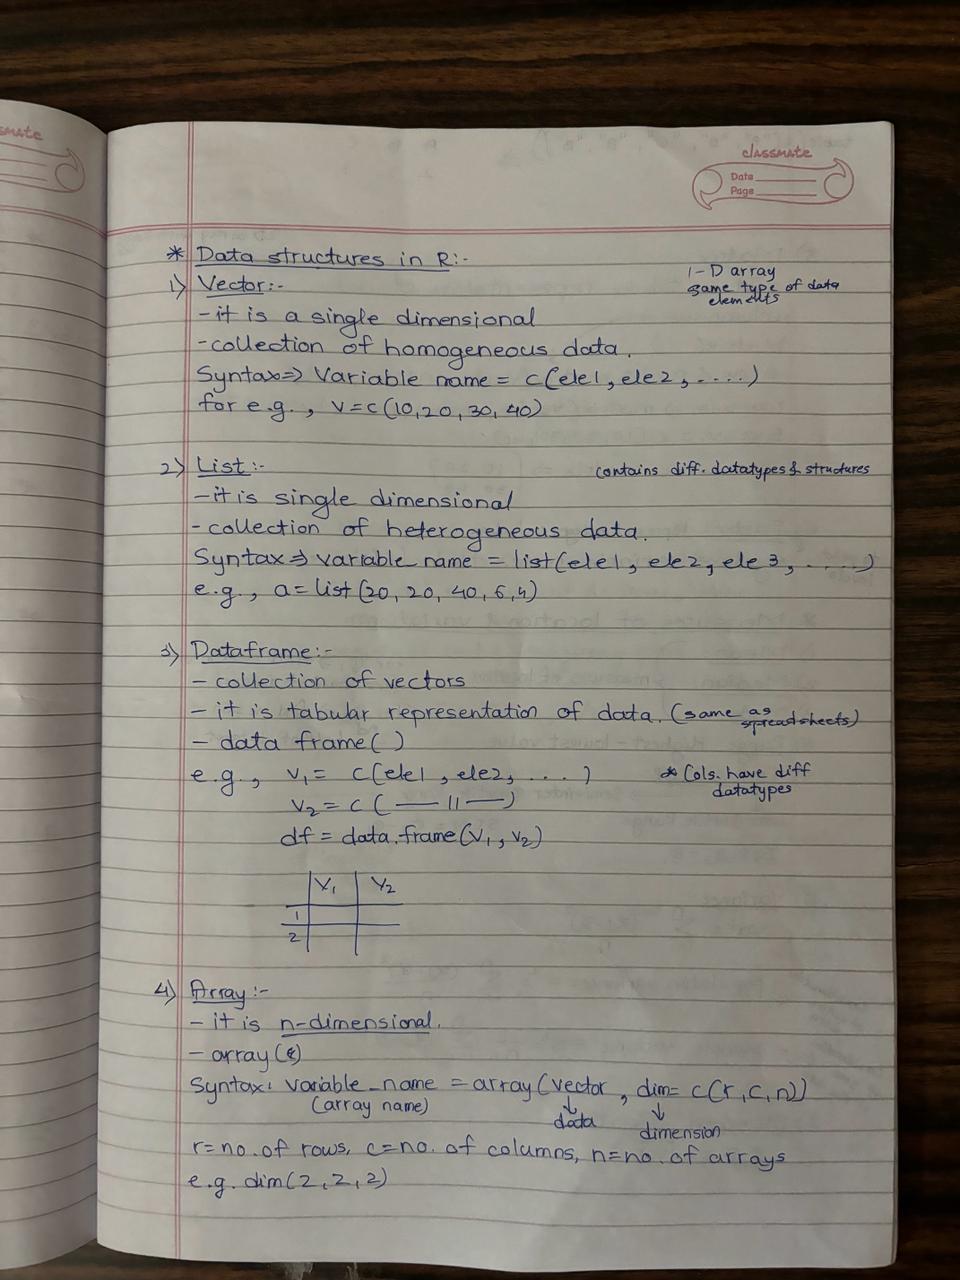 ssmate
classmate
Date
Page
* Data structures in R:-
1-D array
same type of data
elements
1) Vector:-
- it is a single dimensional
- collection of homogeneous data.
Syntax⇒ Variable name = c(ele1, ele2, .....)
for e.g., v=c(10,20,30,40)
2) List:-
contains diff. datatypes & structures
- it is single dimensional
- collection of heterogeneous data.
Syntax⇒ variable name = list(ele1, ele2, ele3, .....)
e.g., a= list(20, 20, 40, 6,4)
3) Dataframe:-
- collection of vectors
- it is tabular representation of data. (same as spreadsheets)
- data frame( )
e.g., V₁= c(ele1, ele2, ....)
* Cols. have diff
datatypes
V₂ = c( —— 11 —— )
df = data.frame(V₁, V₂)
V₁ V₂
1
2
4) Array:-
- it is n-dimensional.
- array( )
Syntax: variable_name = array(vector, dim= c(r,c,n))
(array name) ↓ data ↓ dimension
r=no. of rows, c=no. of columns, n=no. of arrays
e.g. dim(2,2,2)